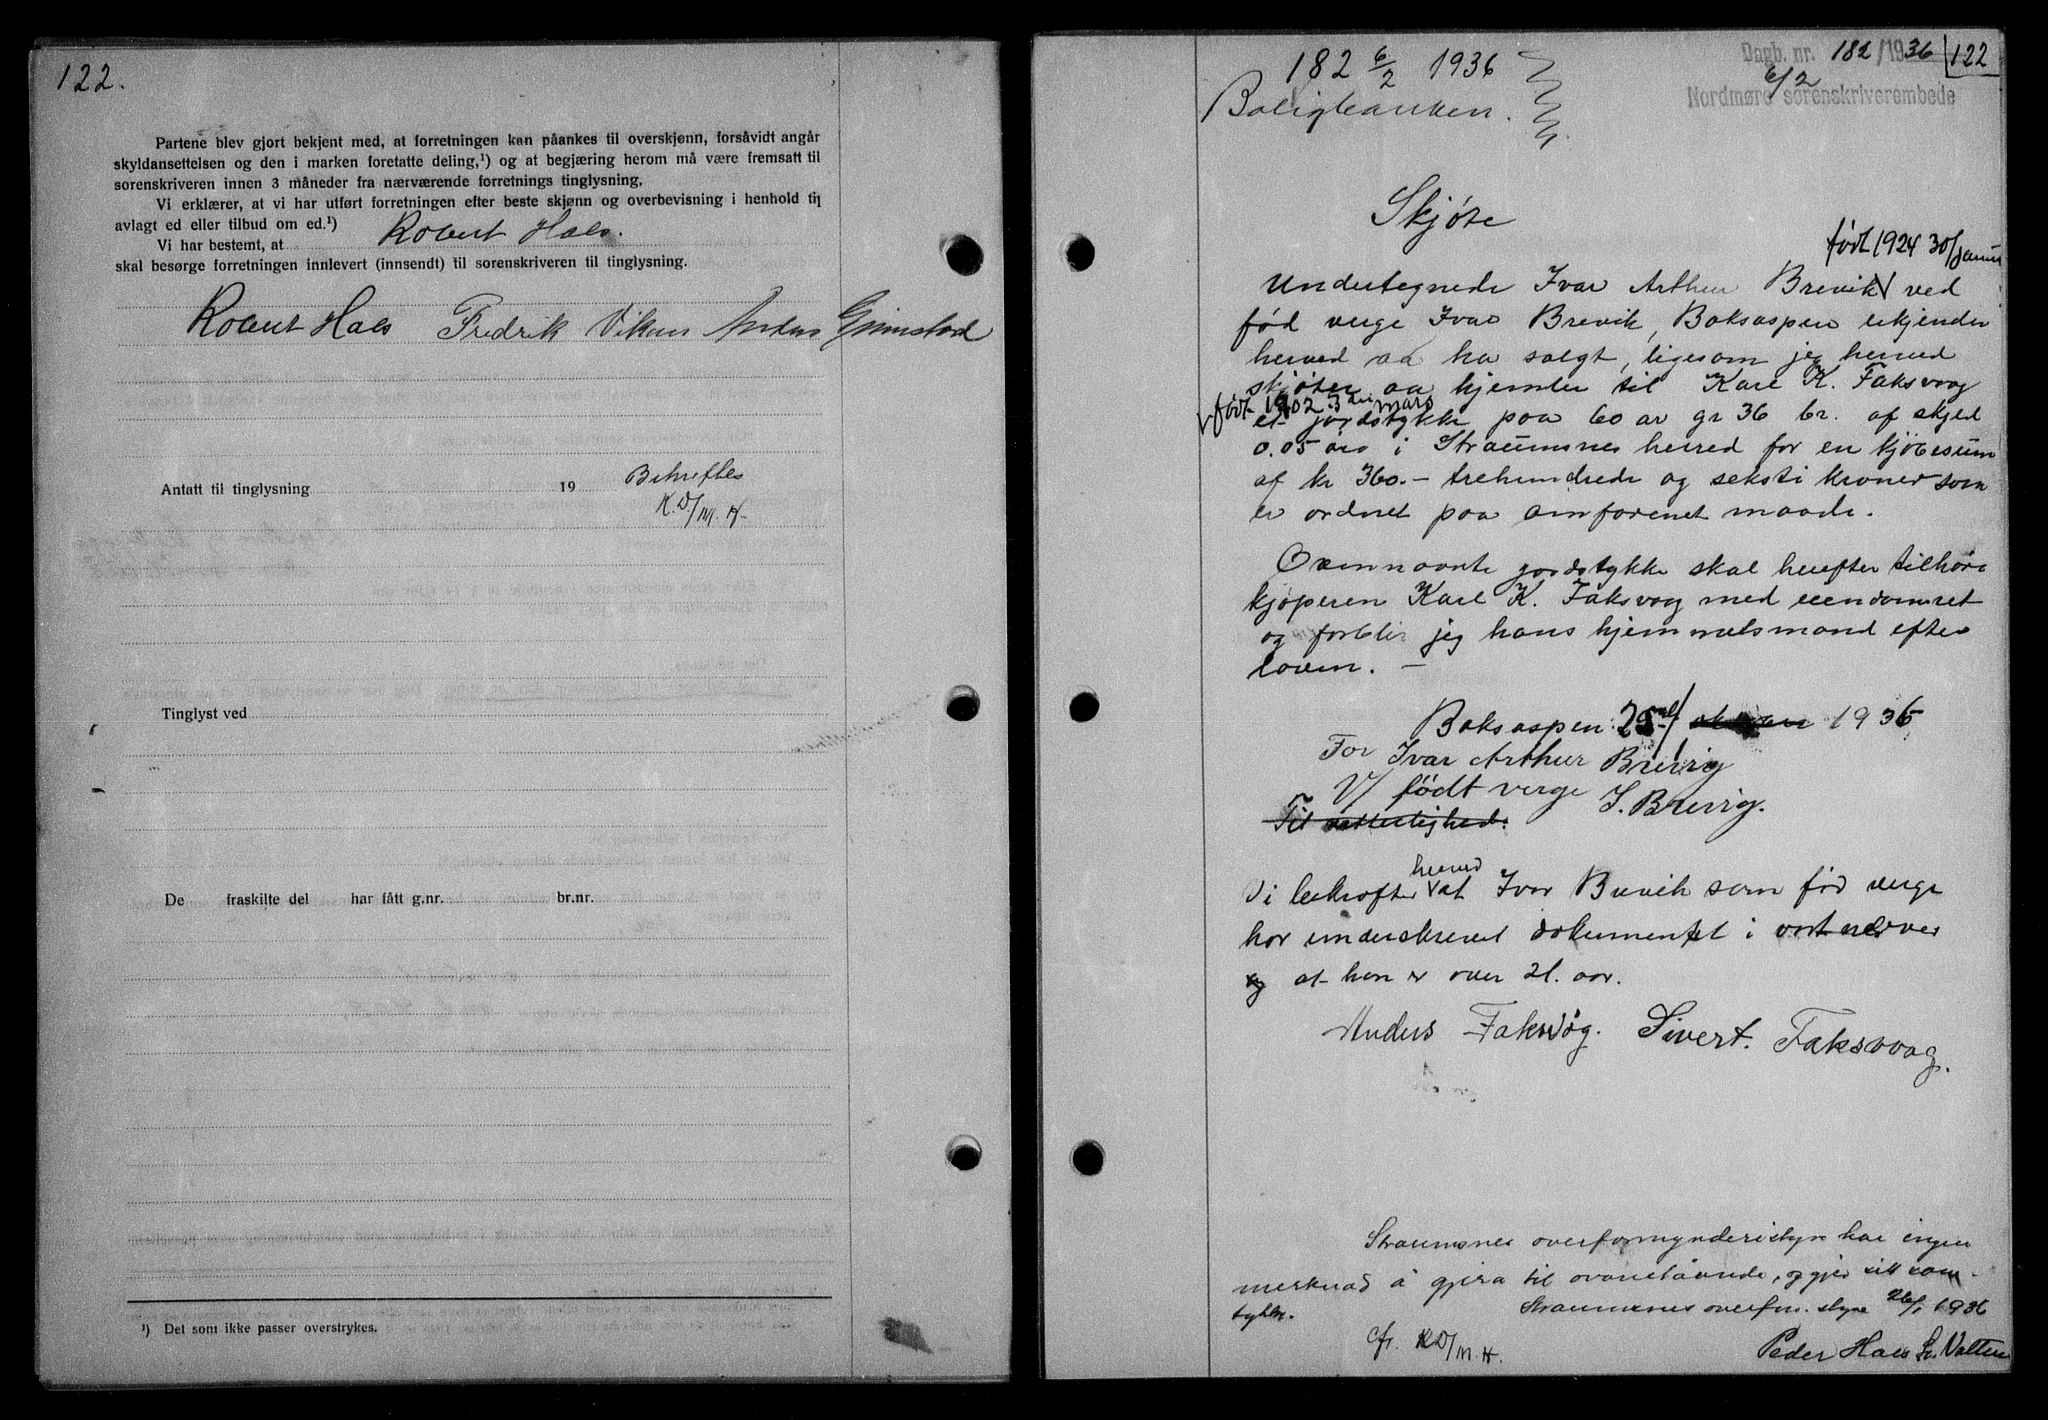 122.
Partene blev gjort bekjent med, at forretningen kan påankes til overskjønn, forsåvidt angår
skyldansettelsen og den i marken foretatte deling,¹) og at begjæring herom må være fremsatt til
sorenskriveren innen 3 måneder fra nærværende forretnings tinglysning.
Vi erklærer, at vi har utført forretningen efter beste skjønn og overbevisning i henhold til
avlagt ed eller tilbud om ed.¹)
Vi har bestemt, at Robert Hals.
skal besørge forretningen innlevert (innsendt) til sorenskriveren til tinglysning.
Robert Hals Fredrik Vikan Anders Grimstad
Antatt til tinglysning 19 Bekreftes
K.D/M.H-
Tinglyst ved
De fraskilte del har fått g.nr. br.nr.
¹) Det som ikke passer overstrykes.
182 6/2 1936
Boligbanken.
Dagb. nr. 182/1936 122
6/2
Nordmøre sorenskriverembede
Skjøte
født 1924 30/januar
Undertegnede Ivar Arthur Brevik ved
fød verge Ivar Brevik, Boksaspen erkjender
herved aa ha solgt, ligesom jeg herved
skjøter aa hjemler til Karl K. Faksvaag
født 1902 3die mars
et jordstykke paa 60 ar gr 36 br. af skjed
0.05 øre i Straumsnes herred for en kjøbesum
af kr 360.- trehundrede og seksti kroner som
er ordnet paa omforenet maade.
Ovennævnte jordstykke skal herefter tilhøre
kjøperen Karl K. Faksvaag med eiendomsret
og forblir jeg hans hjemmelsmand efter
loven. -
Boksaspen 25 1936
For Ivar Arthur Brevig
V/ født verge I. Brevig.
Til vitterlighed.
herved
Vi bekrefter at Ivar Brevik som fød verge
har underskrevet dokumentet i vort nærver
og at han er over 21. aar.
Anders Faksvåg. Sivert. Faksvaag.
Straumsnes overformynderistyre har ingen
merknad å gjøra til ovanståande, og gjev sitt sam-
tykke. Straumsnes overfm. styre 26/1 1936
cfr. KD/M.H. Peder Hals